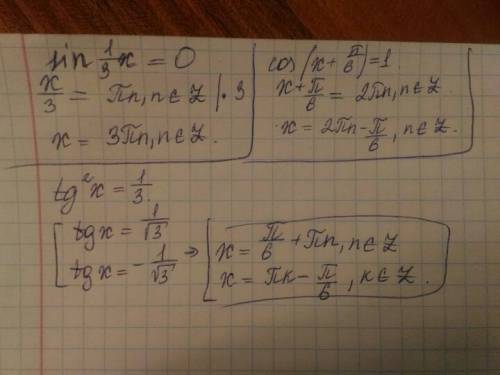 sin 1/3 x = 0
x/3 = πn, n∈Z | · 3
x = 3πn, n∈Z.
cos(x + π/6) = 1.
x + π/6 = 2πn, n∈Z
x = 2πn - π/6, n∈Z.
tg²x = 1/3.
[ tgx = 1/√3
tgx = - 1/√3 ⇒
[ x = π/6 + πn, n∈Z
x = πk - π/6, k∈Z.